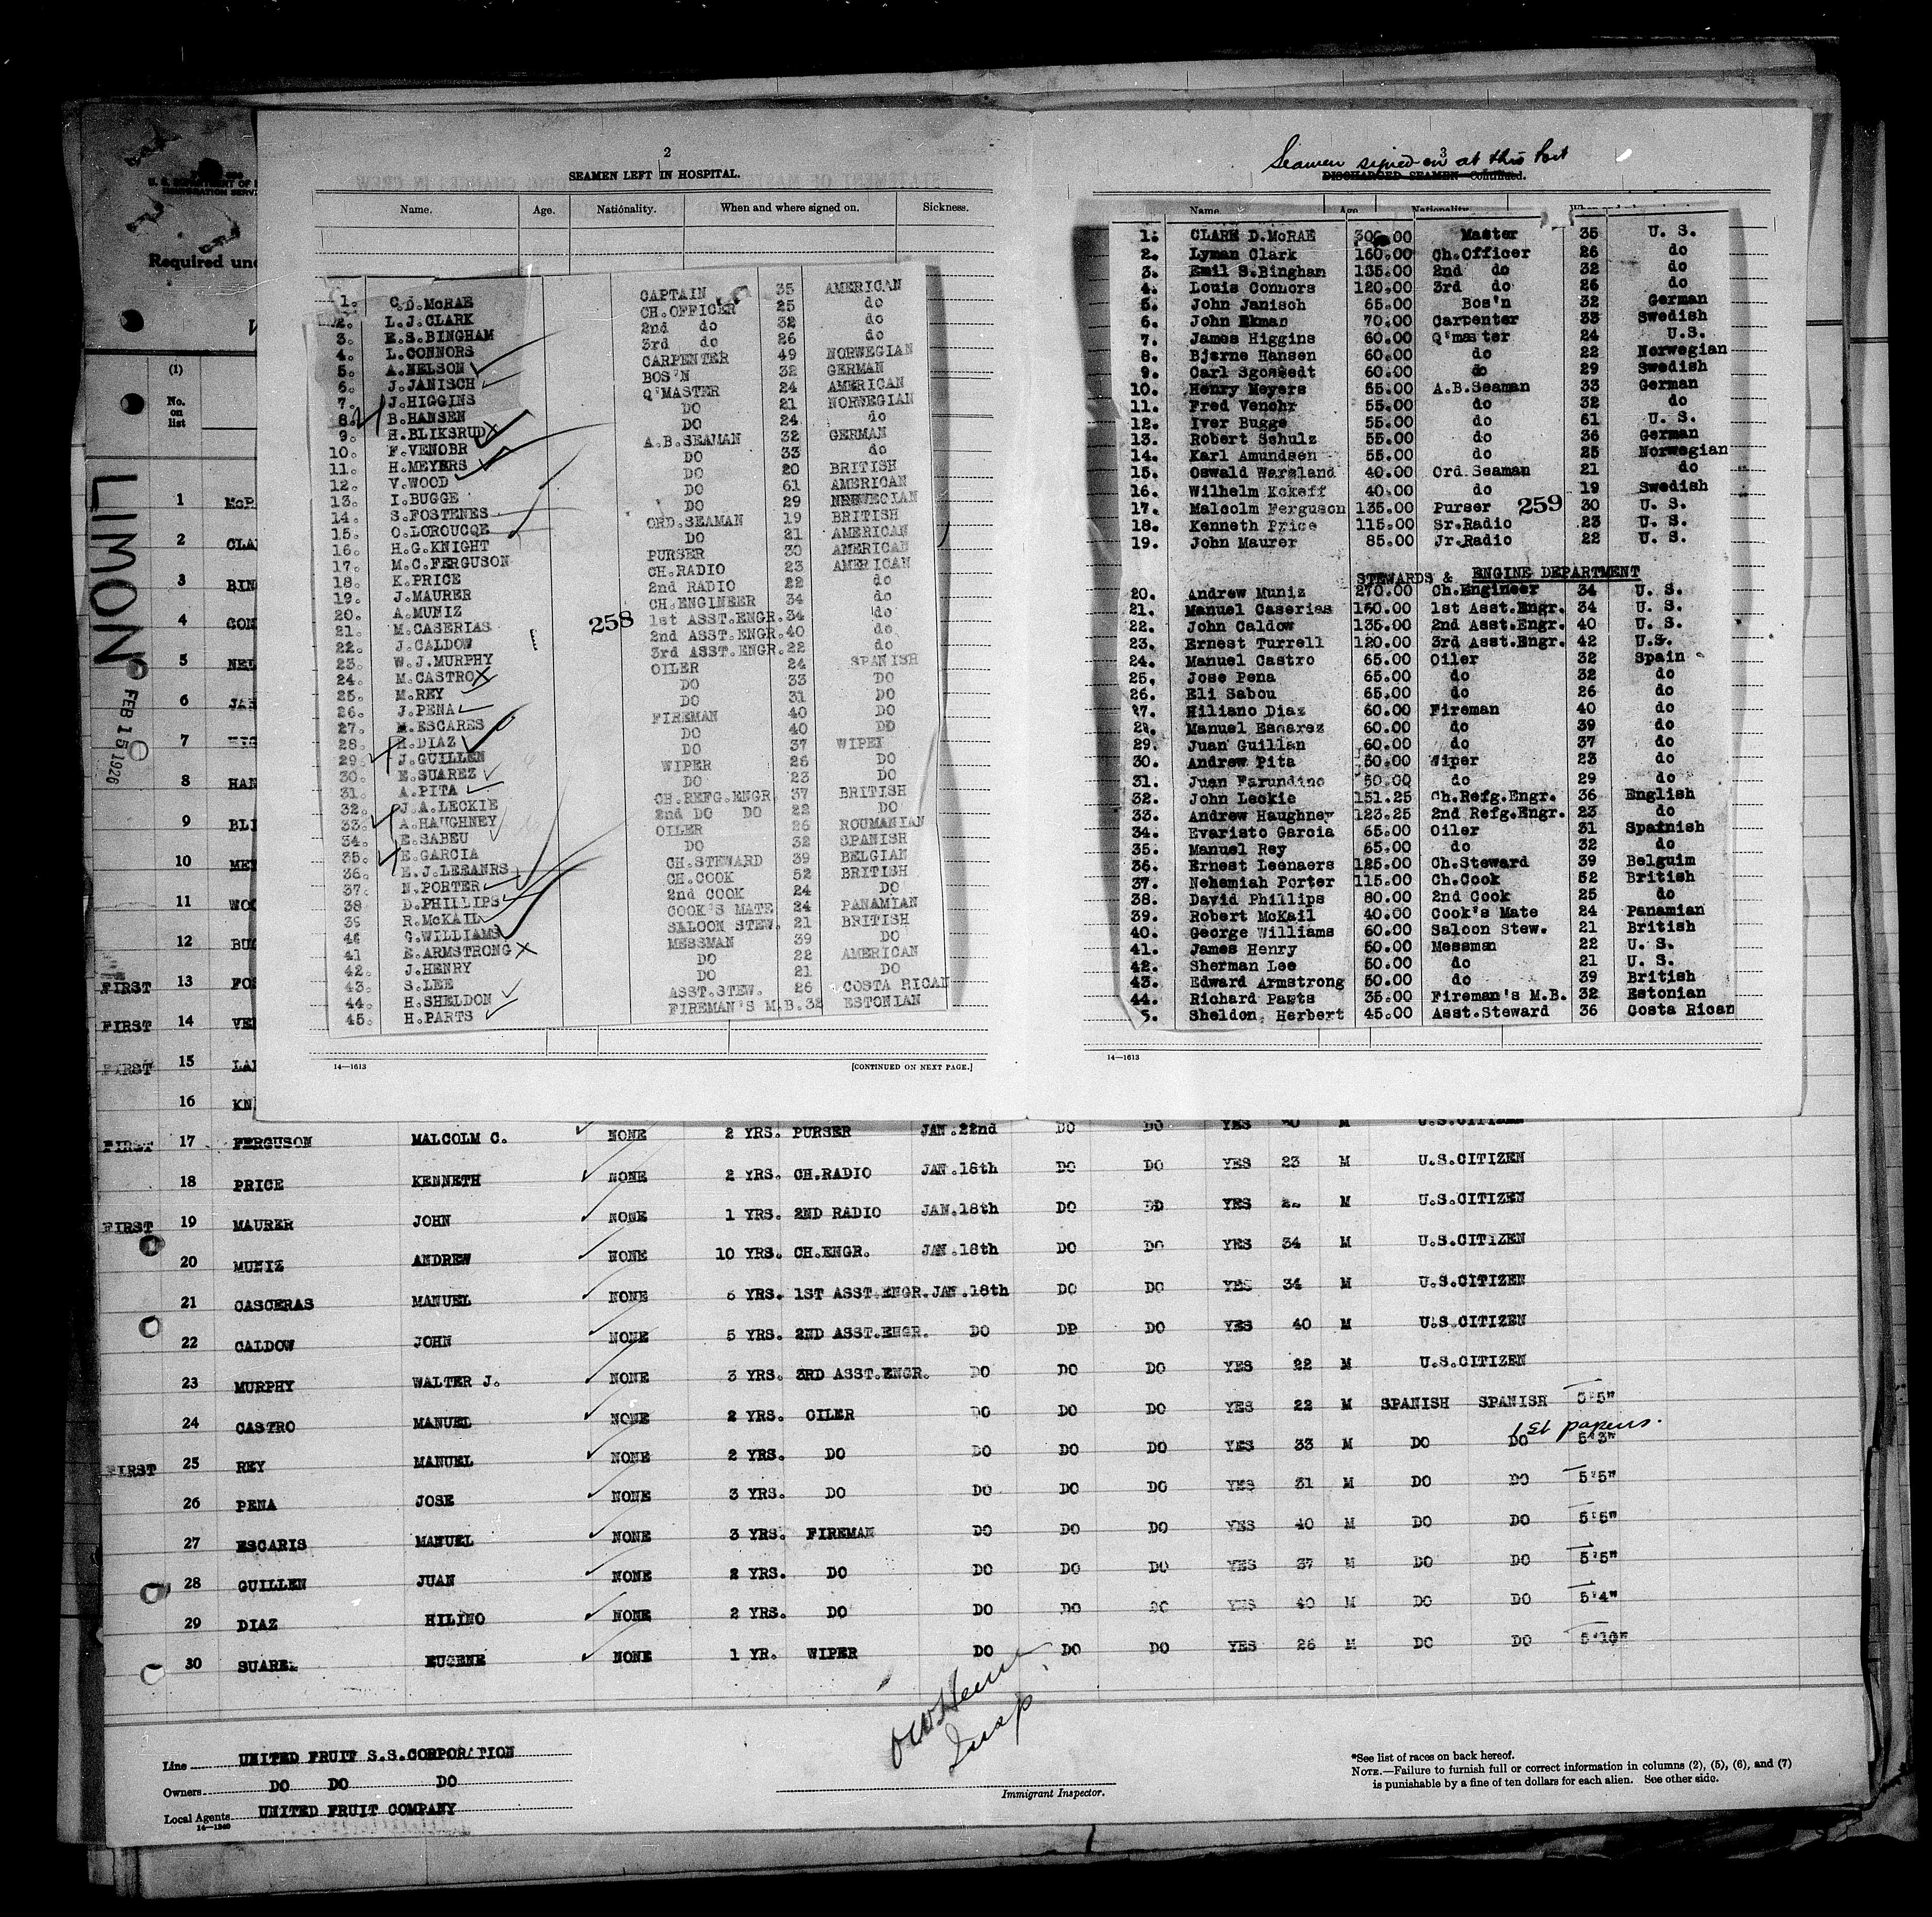 U. S. DEPARTMENT OF
IMMIGRATION SERV
Required und
(1)
No.
on
list
LIMON
FEB 15 1926
1 McR
2 CLA
3 BIN
4 CON
5 NEL
6 JAN
7 HIG
8 HAN
9 BLI
10 MEY
11 WOO
12 BUG
FIRST 13 FOS
FIRST 14 VE
FIRST 15 LA
16 KN
2
SEAMEN LEFT IN HOSPITAL.
Name. Age. Nationality. When and where signed on. Sickness.
1. C.D.McRAE CAPTAIN 35 AMERICAN
2. L.J.CLARK CH.OFFICER 25 do
3. E.S.BINGHAM 2nd do 32 do
4. L.CONNORS 3rd do 26 do
5. A.NELSON CARPENTER 49 NORWEGIAN
6. J.JANISCH BOS'N 32 GERMAN
7. J.HIGGINS Q'MASTER 24 AMERICAN
8. B.HANSEN DO 21 NORWEGIAN
9. H.BLIKSRUD DO 24 do
10. F.VENOBR A.B.SEAMAN 32 GERMAN
11. H.MEYERS DO 33 do
12. V.WOOD DO 20 BRITISH
13. I.BUGGE DO 61 AMERICAN
14. S.FOSTENES DO 29 NORWEGIAN
15. O.LOROUCQE ORD.SEAMAN 19 BRITISH
16. H.G.KNIGHT DO 21 AMERICAN
17. M.C.FERGUSON PURSER 30 AMERICAN
18. K.PRICE CH.RADIO 23 AMERICAN
19. J.MAURER 2nd RADIO 22 do
20. A.MUNIZ CH.ENGINEER 34 do
21. M.CASERIAS 258 1st ASST.ENGR. 34 do
22. J.CALDOW 2nd ASST.ENGR. 40 do
23. W.J.MURPHY 3rd ASST.ENGR. 22 do
24. M.CASTRO OILER 24 SPANISH
25. M.REY DO 33 DO
26. J.PENA DO 31 DO
27. M.ESCARES FIREMAN 40 DO
28. H.DIAZ DO 40 DD
29. J.GUILLEN DO 37 WIPER
30. E.SUAREZ WIPER 26 DO
31. A.PITA DO 23 DO
32. J.A.LECKIE CH.REFG.ENGR. 37 BRITISH
33. A.HAUGHNEY 2nd DO DO 22 DO
34. E.SABEU OILER 26 ROUMANIAN
35. E.GARCIA DO 32 SPANISH
36. E.J.LEEANRS CH.STEWARD 39 BELGIAN
37. N.PORTER CH.COOK 52 BRITISH
38 D.PHILLIPS 2nd COOK 24 DO
39 R.McKAIL COOK'S MATE 24 PANAMIAN
40 G.WILLIAMS SALOON STEW. 21 BRITISH
41 E.ARMSTRONG MESSMAN 39 DO
42. J.HENRY DO 22 AMERICAN
43. S.LEE DO 21 DO
44. H.SHELDON ASST.STEW. 26 COSTA RICAN
45. H.PARTS FIREMAN'S M.B. 32 ESTONIAN
14—1613 [CONTINUED ON NEXT PAGE.]
3
Seamen signed on at this Port
DISCHARGED SEAMEN—Continued.
Name Age Nationality
1. CLARK D.McRAE 300.00 Master 35 U. S.
2. Lyman Clark 160.00 Ch.Officer 26 do
3. Emil S.Bingham 135.00 2nd do 32 do
4. Louis Connors 120.00 3rd do 26 do
5. John Janisch 65.00 Bos'n 32 German
6. John Ekman 70.00 Carpenter 33 Swedish
7. James Higgins 60.00 Q'master 24 U.S.
8. Bjerne Hansen 60.00 do 22 Norwegian
9. Carl Sgossedt 60.00 do 29 Swedish
10. Henry Meyers 55.00 A.B.Seaman 33 German
11. Fred Venohr 55.00 do 32 do
12. Iver Bugge 55.00 do 61 U. S.
13. Robert Schulz 55.00 do 36 German
14. Karl Amundsen 55.00 do 25 Norwegian
15. Oswald Warsland 40.00 Ord.Seaman 21 do
16. Wilhelm Kckeff 40.00 do 19 Swedish
17. Malcolm Ferguson 135.00 Purser 259 30 U. S.
18. Kenneth Price 115.00 Sr.Radio 23 U. S.
19. John Maurer 85.00 Jr.Radio 22 U. S.
STEWARDS & ENGINE DEPARTMENT
20. Andrew Muniz 270.00 Ch.Engineer 34 U. S.
21. Manuel Caserias 150.00 1st Asst.Engr. 34 U. S.
22. John Caldow 135.00 2nd Asst.Engr. 40 U. S.
23. Ernest Turrell 120.00 3rd Asst.Engr. 42 U.S.
24. Manuel Castro 65.00 Oiler 32 Spain
25. Jose Pena 65.00 do 32 do
26. Eli Sabou 65.00 do 26 do
27. Hiliano Diaz 60.00 Fireman 40 do
28. Manuel Escarez 60.00 do 39 do
29. Juan Guillan 60.00 do 37 do
30. Andrew Pita 50.00 Wiper 23 do
31. Juan Farundino 50.00 do 29 do
32. John Leckie 151.25 Ch.Refg.Engr. 36 English
33. Andrew Haughney 123.25 2nd Refg.Engr. 23 do
34. Evaristo Garcia 65.00 Oiler 31 Spainish
35. Manuel Rey 65.00 do 32 do
36. Ernest Leenaers 125.00 Ch.Steward 39 Belguim
37. Nehemiah Porter 115.00 Ch.Cook 52 British
38. David Phillips 80.00 2nd Cook 25 do
39. Robert McKail 40.00 Cook's Mate 24 Panamian
40. George Williams 60.00 Saloon Stew. 21 British
41. James Henry 50.00 Messman 22 U. S.
42. Sherman Lee 50.00 do 21 U. S.
43. Edward Armstrong 50.00 do 39 British
44. Richard Parts 35.00 Fireman's M.B. 32 Estonian
5. Sheldon Herbert 45.00 Asst.Steward 36 Costa Rican
14—1613
FIRST 17 FERGUSON MALCOLM C. NONE 2 YRS. PURSER JAN.22nd DO DO YES 30 M U.S.CITIZEN
18 PRICE KENNETH NONE 2 YRS. CH.RADIO JAN.18th DO DO YES 23 M U.S.CITIZEN
FIRST 19 MAURER JOHN NONE 1 YRS. 2ND RADIO JAN.18th DO DD YES 22 M U.S.CITIZEN
20 MUNIZ ANDREW NONE 10 YRS. CH.ENGR. JAN.18th DO DO YES 34 M U.S.CITIZEN
21 CASCERAS MANUEL NONE 6 YRS. 1ST ASST.ENGR. JAN.18th DO DO YES 34 M U.S.CITIZEN
22 CALDOW JOHN NONE 5 YRS. 2ND ASST.ENGR. DO DP DO YES 40 M U.S.CITIZEN
23 MURPHY WALTER J. NONE 3 YRS. 3RD ASST.ENGR. DO DO DO YES 22 M U.S.CITIZEN
24 CASTRO MANUEL NONE 2 YRS. OILER DO DO DO YES 22 M SPANISH SPANISH 5'5"
1st papers.
FIRST 25 REY MANUEL NONE 2 YRS. DO DO DO DO YES 33 M DO DO 5'3"
26 PENA JOSE NONE 3 YRS. DO DO DO DO YES 31 M DO DO 5'5"
27 ESCARIS MANUEL NONE 3 YRS. FIREMAN DO DO DO YES 40 M DO DO 5'5"
28 GUILLEN JUAN NONE 2 YRS. DO DO DO DO YES 37 M DO DO 5'5"
29 DIAZ HILINO NONE 2 YRS. DO DO DO DO YES 40 M DO DO 5'4"
30 SUAREZ EUGENE NONE 1 YR. WIPER DO DO DO YES 26 M DO DO 5'10"
Insp
Line UNITED FRUIT S.S.CORPORATION
Owners DO DO DO
Local Agents UNITED FRUIT COMPANY
14—1240
Immigrant Inspector.
*See list of races on back hereof.
NOTE.—Failure to furnish full or correct information in columns (2), (5), (6), and (7)
is punishable by a fine of ten dollars for each alien. See other side.